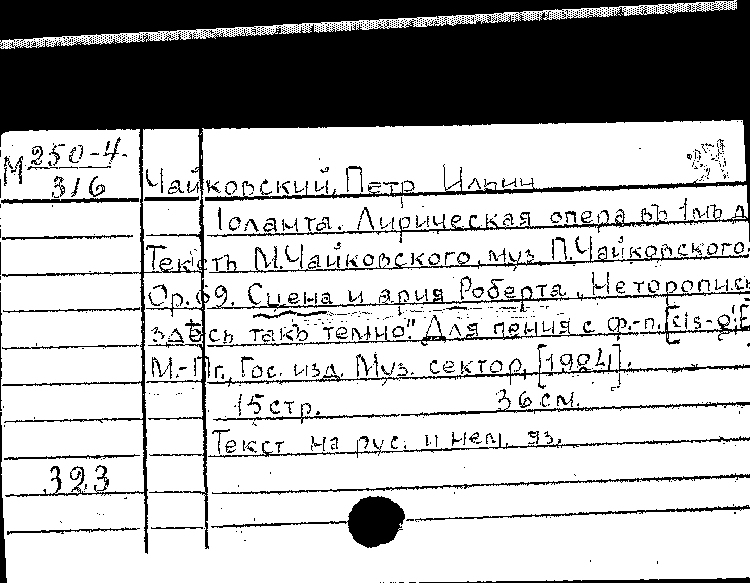 М 250-4
316
Чайковский, Петр Ильич
Іоланта. Лирическая опера въ 1мъ д
Текстъ М. Чайковского, муз. П. Чайковского.
Op. 69. Сцена и ария Роберта „Неторопись
здѣсь такъ темно". Для пения с ф.-п. [cis-g'
М.-Пг., Гос. изд. Муз. сектор, [1924].
15 стр. 36 см.
Текст на рус. и нем. яз.
323